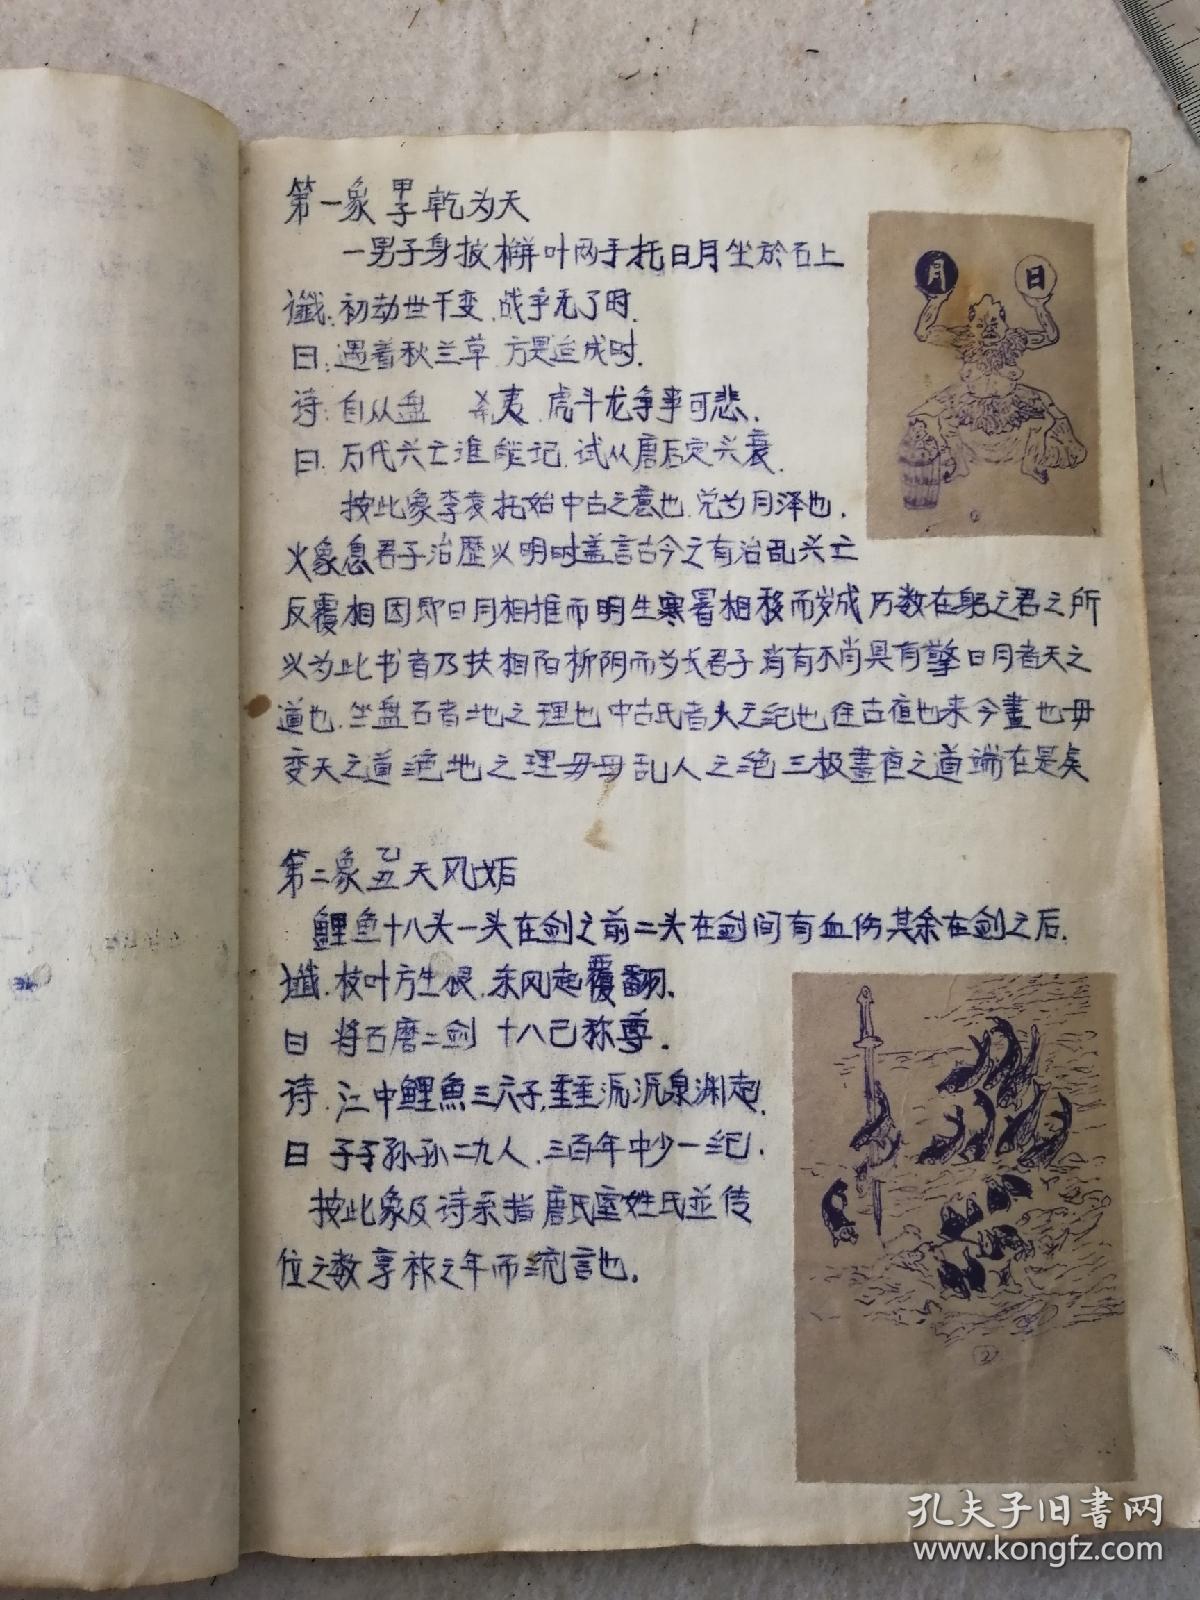 第一象 甲子 乾为天
一男子身披槲叶两手托日月坐於石上
谶:初劫世千变.战争无了时.
曰:遇着秋兰草 方是造成时.
诗:自从盘 希夷.虎斗龙争事可悲.
曰.万代兴亡谁能记.试从唐后定兴衰.
按此象李 托始中古之意也.兑为月泽也.
火象息君子治歷以明时盖言古今之有治乱兴亡
反覆相因即日月相推而明生寒暑相移而岁成 历数在躬之君之所
以为此书者乃扶相阳 阴而为长君子消有不肖具有擎日月者天之
道也.坐盘石者地之理也中古氏者人之纪也往古夜也来今晝也毋
变天之道绝地之理毋毋乱人之绝三极晝夜之道端在是矣
月
日
第二象 乙丑 天风姤
鲤鱼十八头一头在剑之前二头在剑间有血伤其余在剑之后.
谶.枝叶方生根.东风起覆翻.
曰 将石磨二剑 十八已称尊.
诗.江中鲤魚三六子,重重 泉渊起.
曰 子子孙孙二九人.三百年中少一纪.
按此象及诗系指唐氏室姓氏並传
位之数享祚之年而统言也.
2
孔夫子旧书网
www.kongfz.com